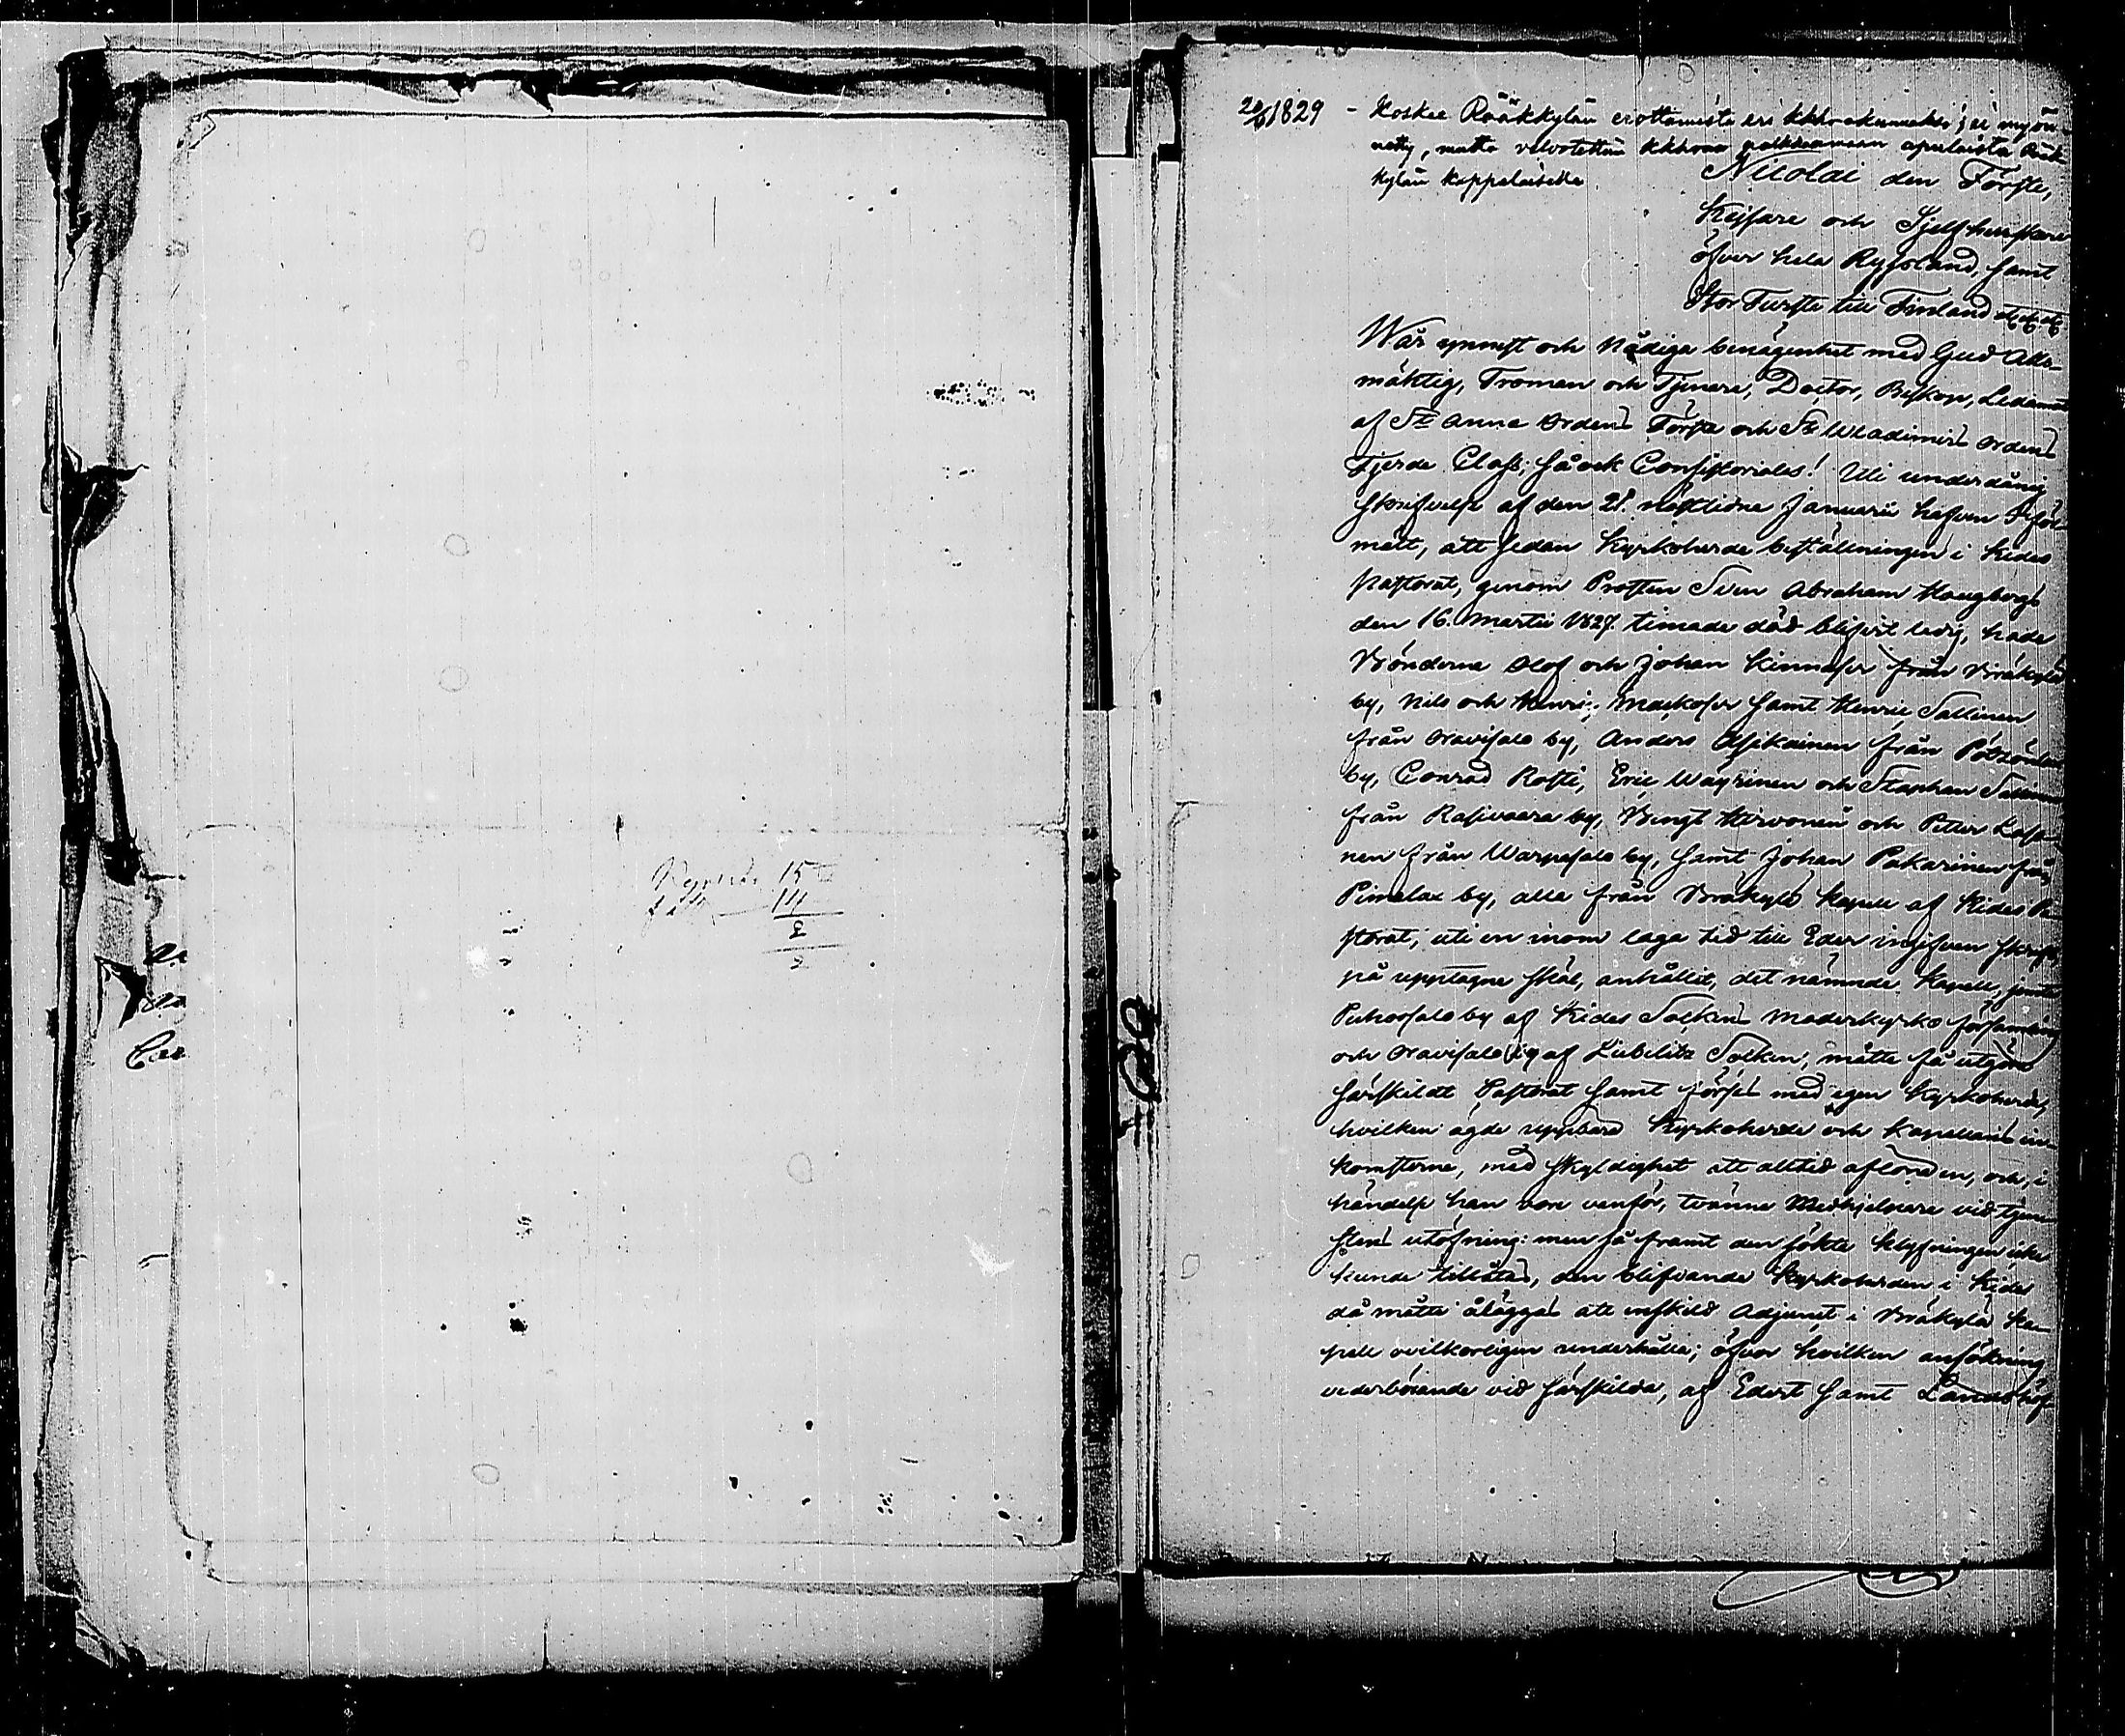 15
14
2
2
1829 - Koskee Rääkkylän erottamista eri khrakunnaksi; ei myön-
netty, mutta velvotettiin kkhraa palkkaamaan apulaista Rääk-
kylän kappelaiselle
Nicolai den Förste,
Kejsare och Sjelfherrskare
öfver hela Ryssland, samt
Stor Furste till Finland etc. etc. etc.
Wår ynnest och Nådiga benägenhet med Gud Alls-
mäktig, Troman och Tjenare, Doctor, Biskop, Ledamot
af St Annæ Ordens Första och St Wladimirs Ordens
Fjerde Class; så ock Consistoriales! Uti underdånig
skrifvelse af den 21. nästlidne Januarii hafven I för-
mält, att sedan Kyrkoherde beställningen i Kides
Pastorat, genom Prosten Sven Abraham Haugbergs
den 16. Martii 1827 timade död blifvit ledig, hade
Bönderne Olof och Johan Kinnaser från Bräkylä
by, Nils och Henric Maskoser samt Henric Sallinen
från Oravisalo by, Anders Asikainen från
by, Conrad Rosti, Eric Wayrinen och Staphan
från Rasivaara by, Bengt Hirvonen och Petter
nen från Warpasalo by, samt Johan Pakarinen från
Pimelax by, alla från Bräkylä Kapell af Kides Pa-
storat, uti en inom laga tid till Eder ingifven skrift
på upptagne skäl, anhållit, det nämnde Kapell, jemte
Puhossalo by af Kides Solkens Moderkyrko församling
och Oravisalo by af Libelits Solken, måtte få utgöra
särskildt Pastorat samt förses med egen Kyrkoherde,
hvilken ägde uppbära Kyrkoherde och Kapellans in-
komsterne, med skyldighet att alltid aflöna en, och, i
händelse han vore vanför, tvänne Medhjelpare vid tjen-
stens utöfning: men så framt den sökte klyfningen icke
kunde tillåtas, den blifvande Kyrkoherden i Kides
då måtte åläggas att enskild Adjunct i Bräkylä Ka-
pell ovilkorligen underhålla; öfver hvilken ansökning
vederbörande vid särskilda, af Edert samt Landshöf-